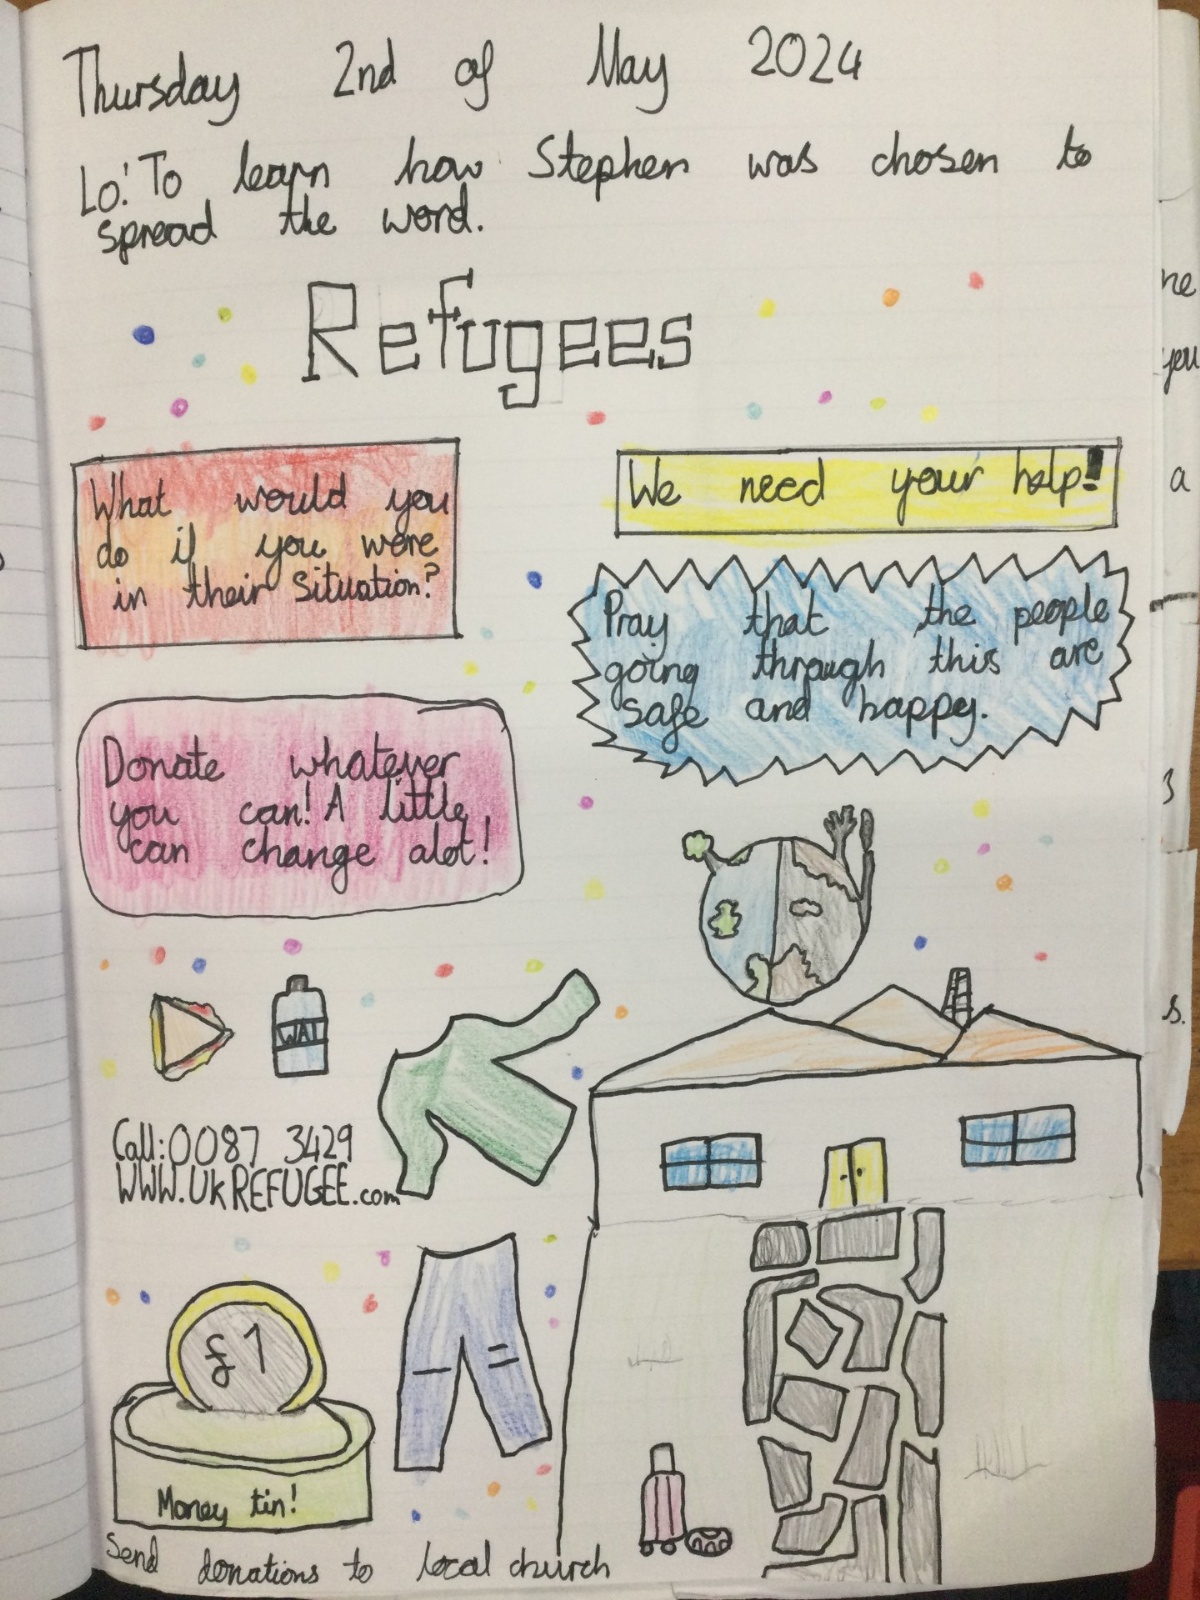 Thursday 2nd of May 2024
Lo: To learn how Stephen was chosen to
spread the word.
Refugees
What would you
do if you were
in their situation?
We need your help!
Pray that the people
going through this are
safe and happy.
Donate whatever
you can! A little
can change alot!
WAT
Call: 0087 3429
WWW.UKREFUGEE.com
£1
Money tin!
Send donations to local church
you
a
3
s.